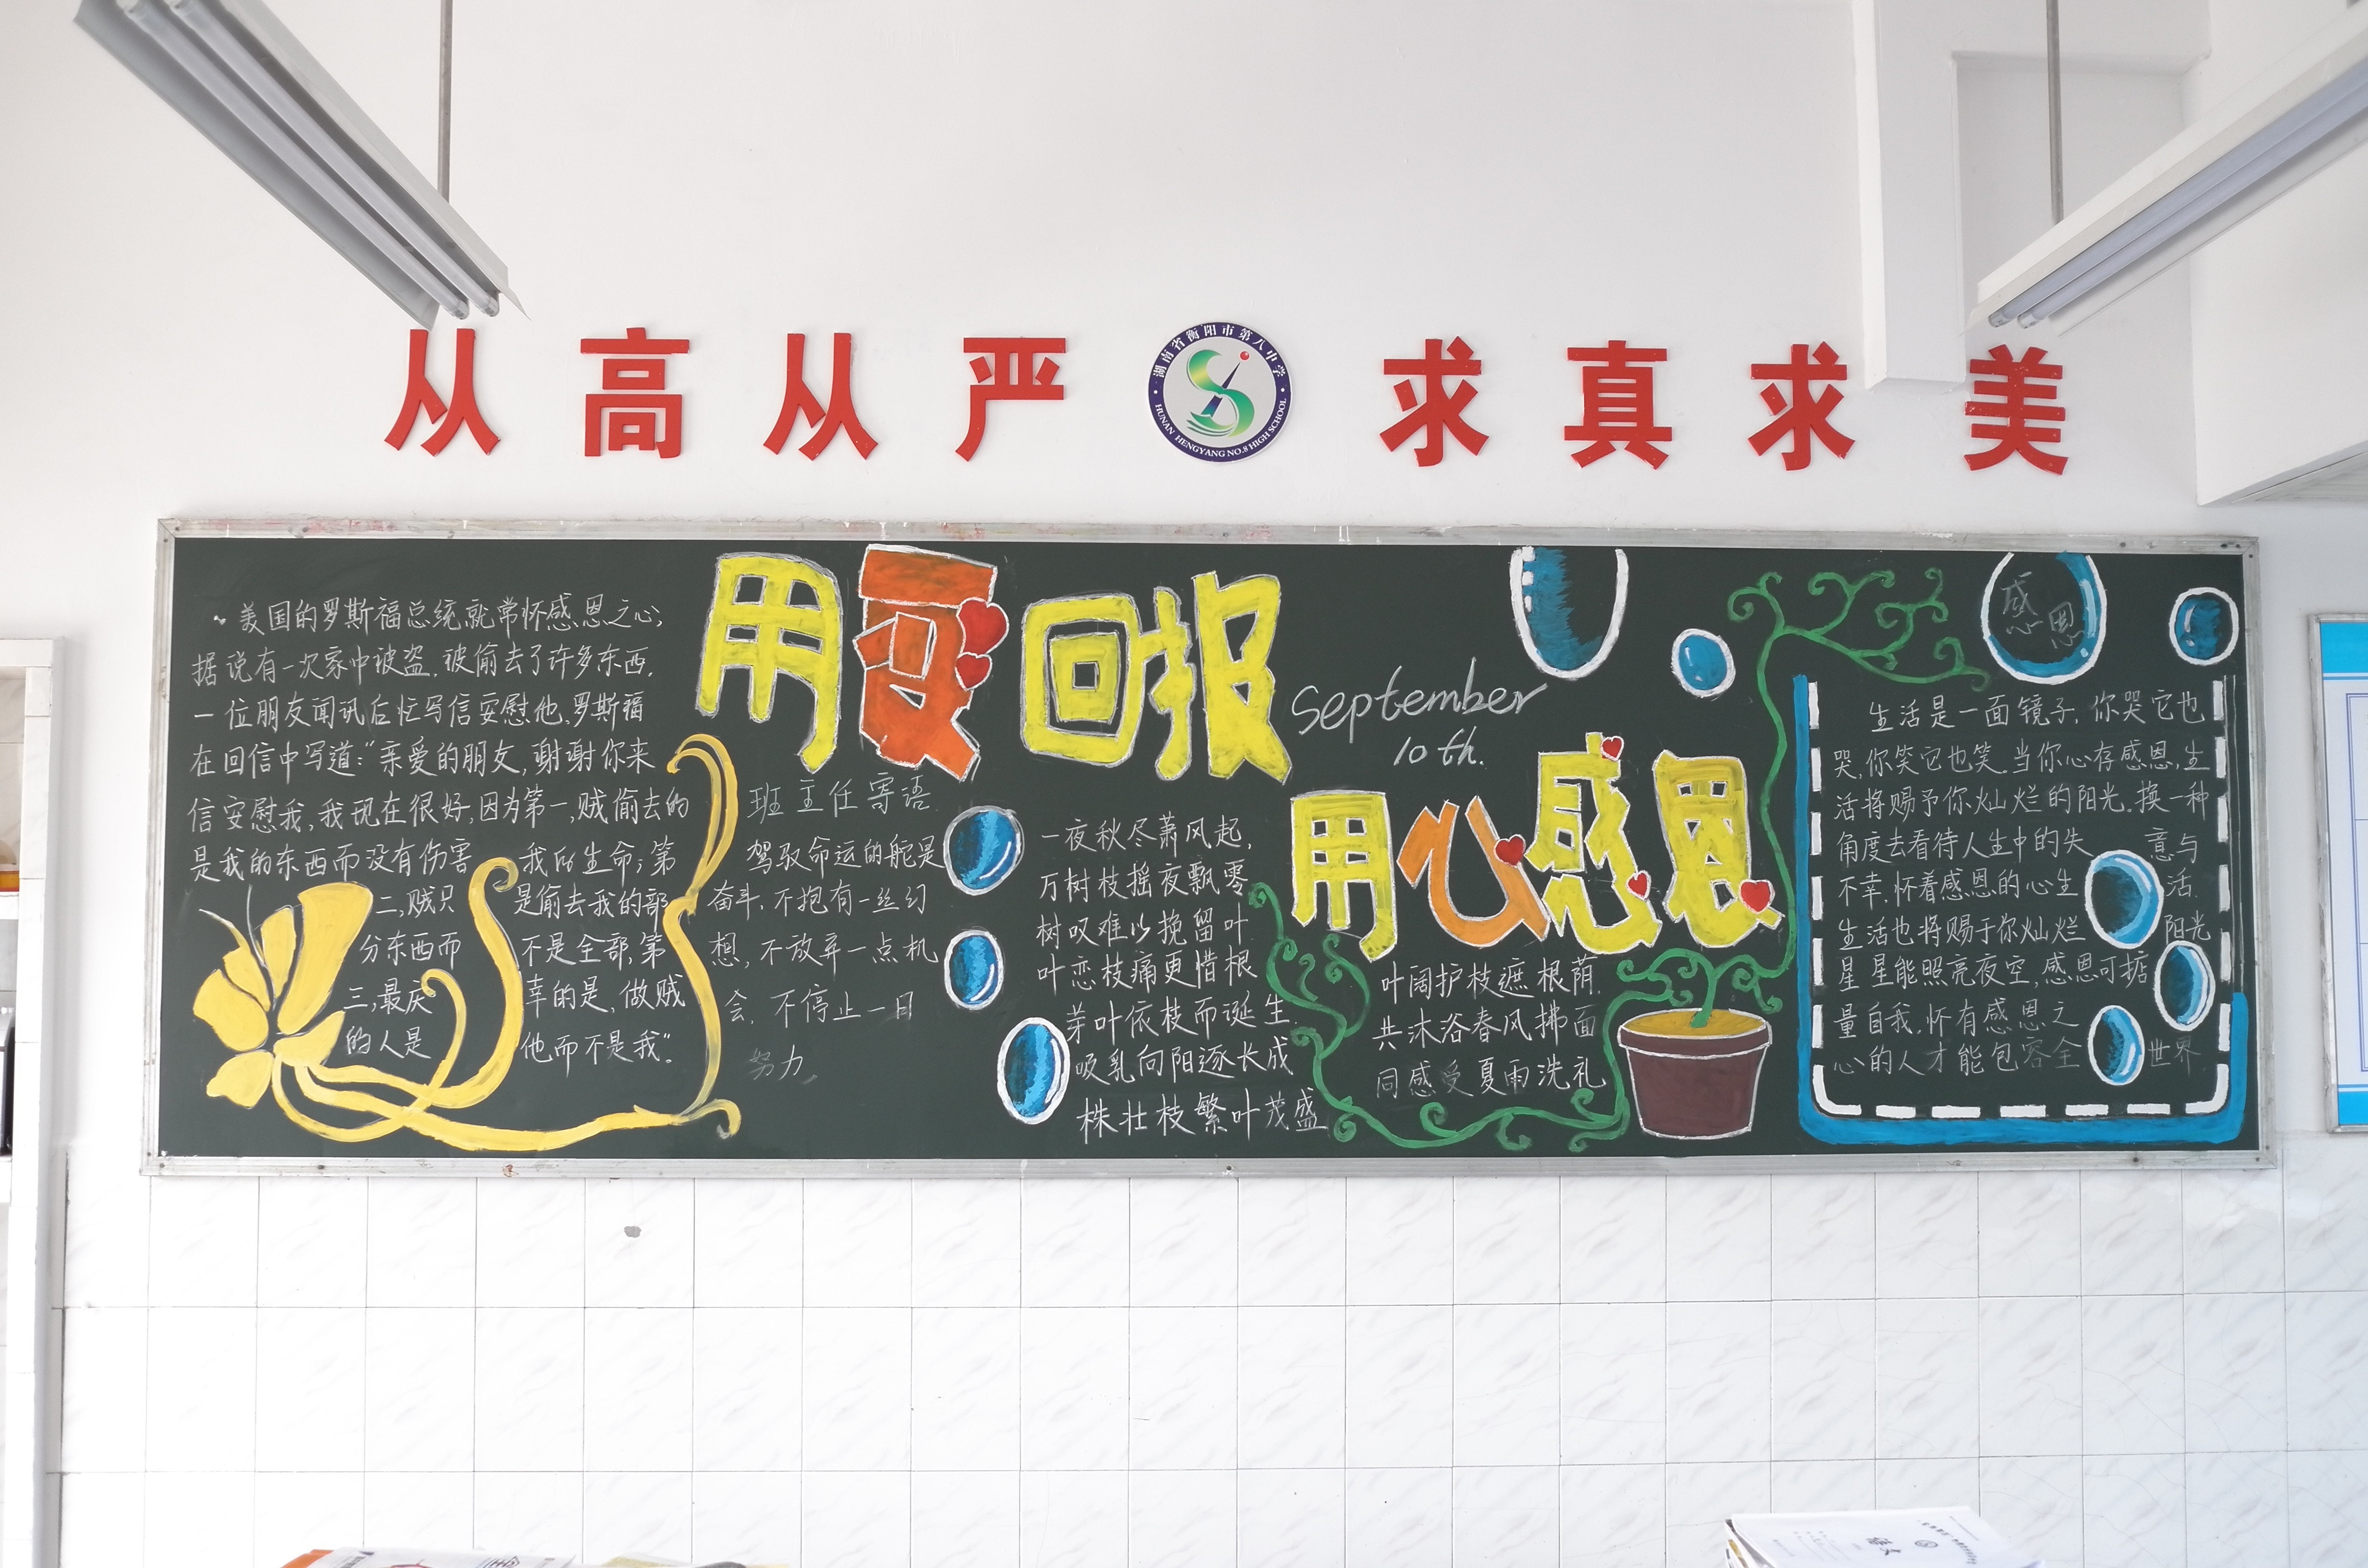 从高从严
湖南省衡阳市第八中学
HUNAN HENGYANG NO.8 HIGH SCHOOL
求真求美
用爱回报
September
10th.
用心感恩
美国的罗斯福总统就常怀感恩之心,
据说有一次家中被盗,被偷去了许多东西,
一位朋友闻讯后忙写信安慰他,罗斯福
在回信中写道:“亲爱的朋友,谢谢你来
信安慰我,我现在很好,因为第一,贼偷去的
是我的东西而没有伤害我的生命;第
二,贼只是偷去我的部
分东西而不是全部,第
三,最庆幸的是,做贼
的人是他而不是我”。
班主任寄语
驾驭命运的舵是
奋斗,不抱有一丝幻
想,不放弃一点机
会,不停止一日
努力
一夜秋尽萧风起,
万树枝摇夜飘零
树叹难以挽留叶
叶恋枝痛更惜根
芽叶依枝而诞生
吸乳向阳逐长成
株壮枝繁叶茂盛
叶阔护枝遮根荫
共沐浴春风拂面
同感受夏雨洗礼
感恩
生活是一面镜子,你哭它也
哭,你笑它也笑.当你心存感恩,生
活将赐予你灿烂的阳光.换一种
角度去看待人生中的失意与
不幸,怀着感恩的心生活.
生活也将赐于你灿烂阳光
星星能照亮夜空,感恩可掂
量自我,怀有感恩之
心的人才能包容全世界.
语文